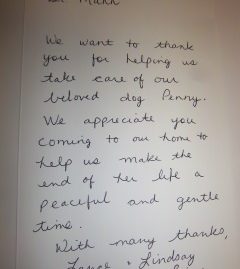 Dr. Mann
We want to thank
you for helping us
take care of our
beloved dog Penny.
We appreciate you
coming to our home to
help us make the
end of her life a
peaceful and gentle
time.
With many thanks,
& Lindsay